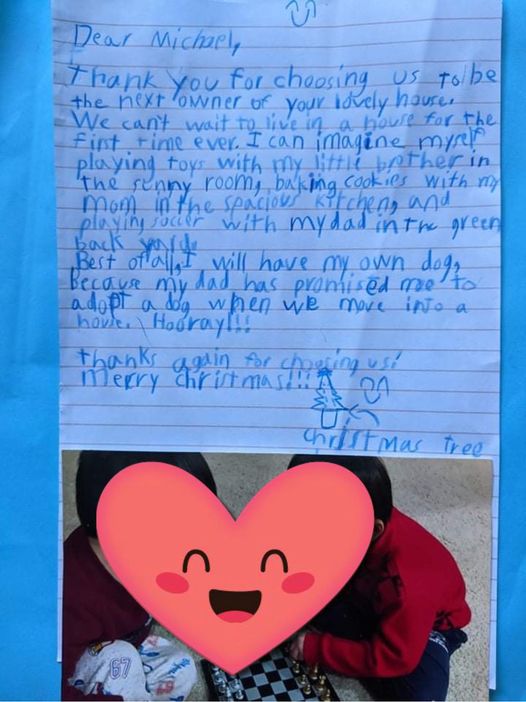 Dear Michael,
Thank you for choosing us to be
the next owner of your lovely house.
We can't wait to live in a house for the
first time ever. I can imagine myself
playing toys with my little brother in
the sunny room, baking cookies with my
mom in the spacious kitchen, and
playing soccer with my dad in the green
back yard.
Best of all, I will have my own dog,
because my dad has promised me to
adopt a dog when we move into a
house. Hooray!!!
thanks again for choosing us!
Merry christmas!!!
christmas tree
67